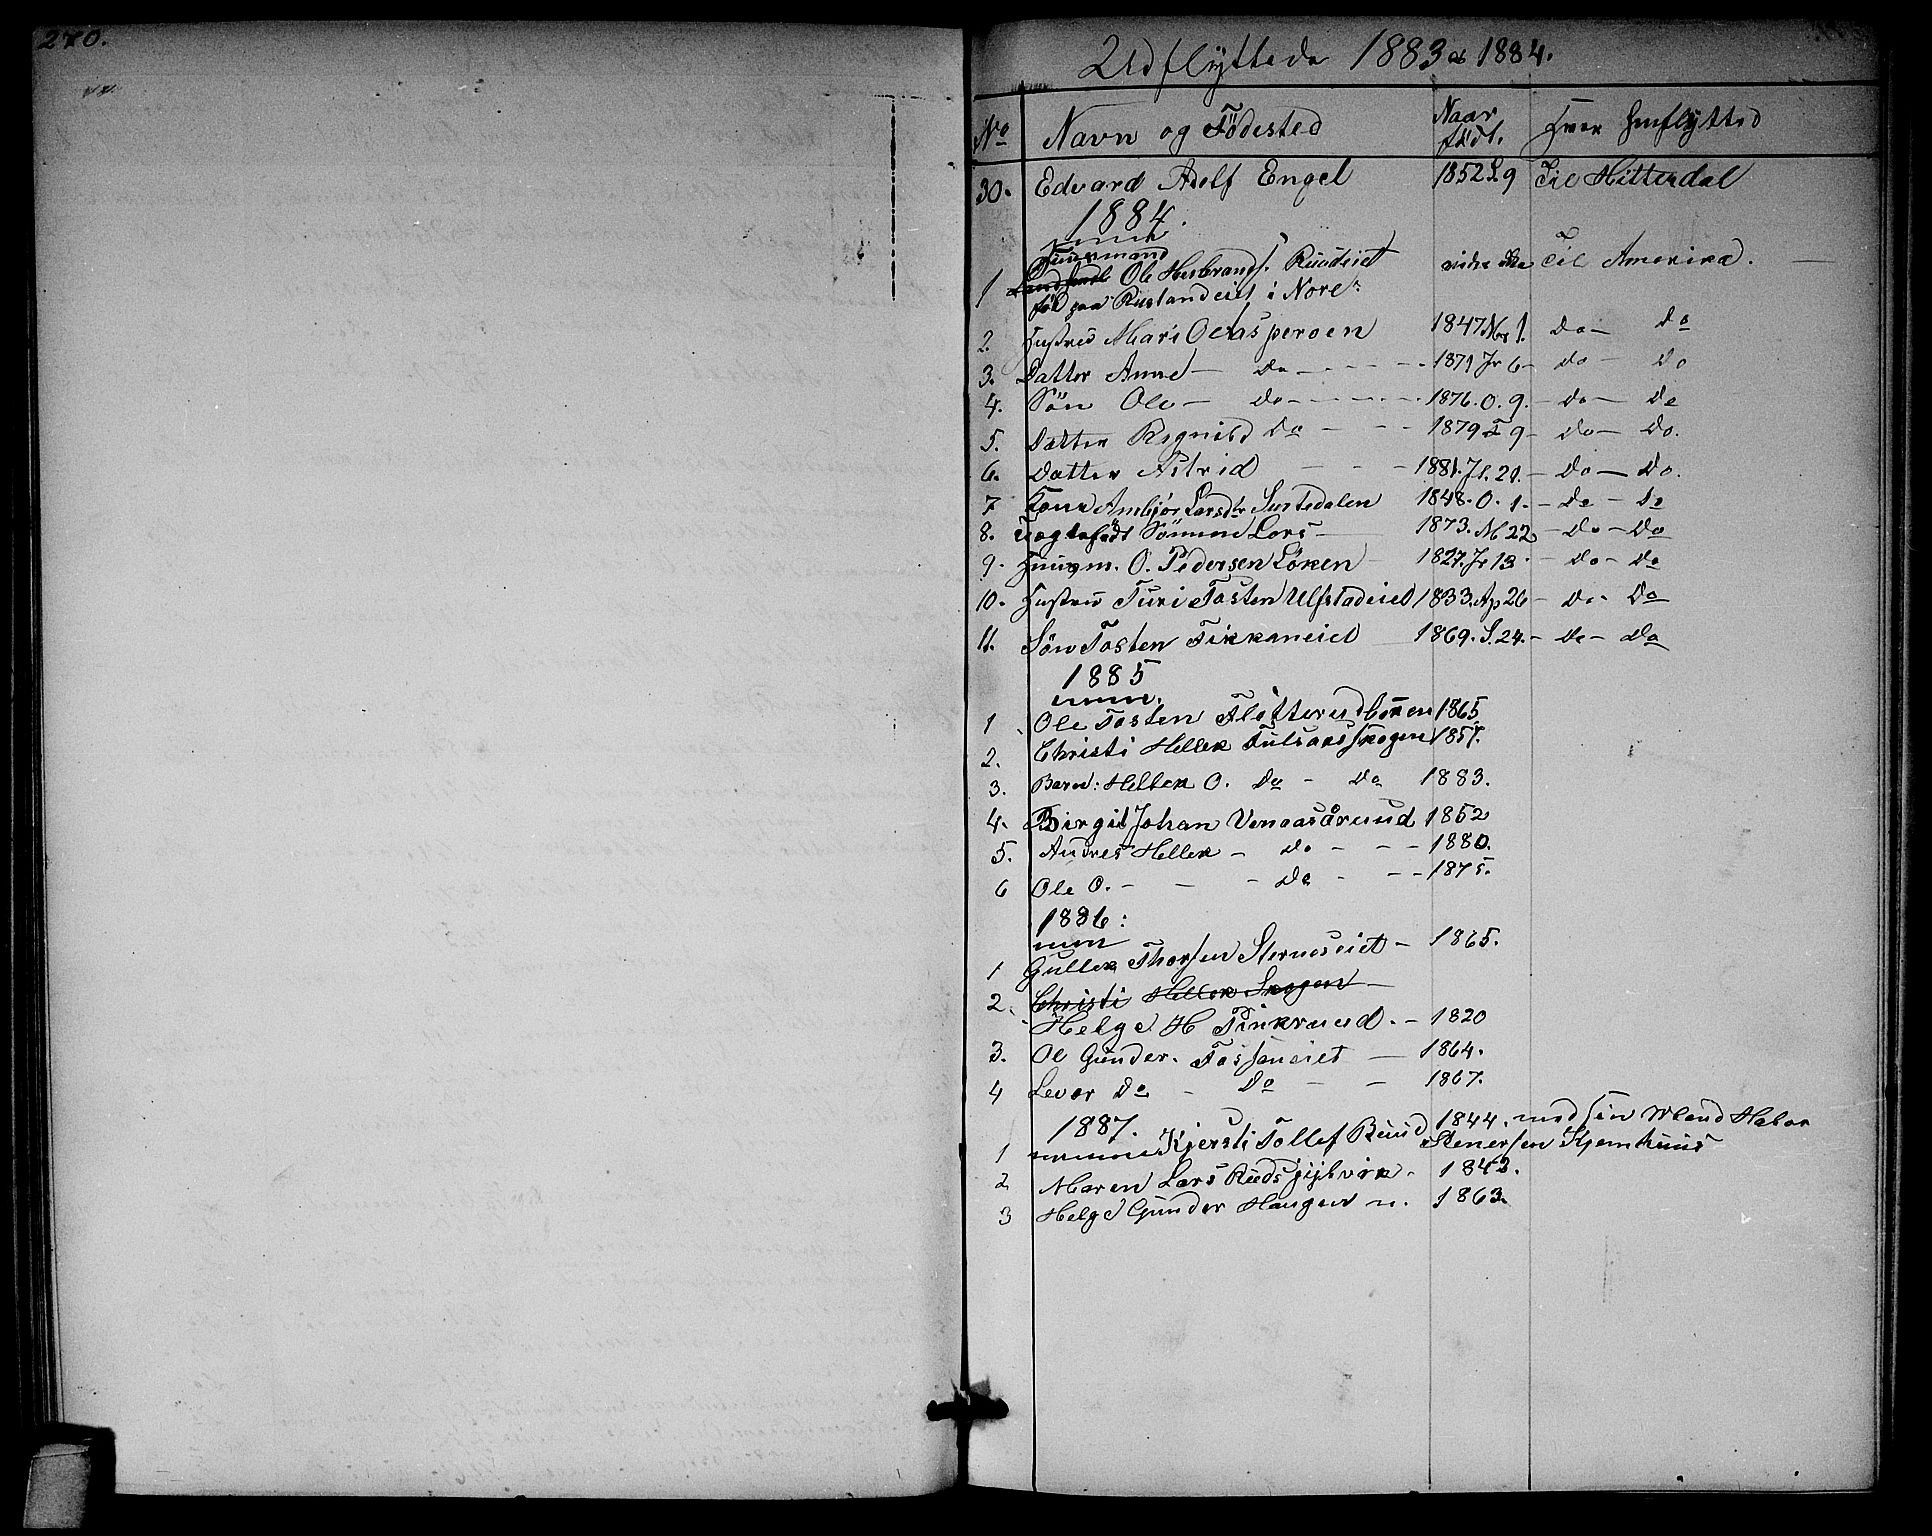 270.
Udflyttede 1883 og 1884.
No Navn og Födested Naar födt. Hvor henflytted
30. Edvard Adolf Engel 1852 S. 9 Til Hitterdal
1884
Huusmand
1 Ole Herbrands. Ruudeiet vides ikke Til Amerika.
föd paa Rustandeiet i Nore
2. Hustru Mari Olens peroen 1847 Nov 1. Do - Do
3. Datter Anne - Do - - - 1871 Jr 6 - do - Do
4. Sön Ole - do - - - 1876. O. 9. - do - Do
5. Datter Ragnild Do - - - 1879 F 9 - Do - Do.
6. Datter Astrid - - - 1881. Jl. 21. - Do - Do.
7 Kone Ambjör Larsdtr Surtedalen 1848. O. 1. - Do - Do
8. Uægtefödt Sönnen Lars - 1873. M 22 - Do - Do
9. Huusm. O. Pedersen Löken - 1827. Jr 13. - Do - Do
10. Hustru Turi Tosten Ulfstadeiet 1833. Ap 26 - Do - Do
11. Sön Tosten Fikkaneiet 1869. S. 24. - Do - Do
1885
1 Ole Tosten Flötterudbakken 1865
2. Christi Hellek Tulsaasskogen 1857.
3. Barn: Hellek O. Do - Do 1883.
4. Birgit Johan Venaasåruud 1852
5. Andres Hellek - Do - - - 1880.
6 Ole O. - - - Do - - - 1875.
1886:
1 Gullek Thorsen Sternæseiet - 1865.
2. Christi Hellek Skogen -
Helge H Finkruud. - 1820
3. Ol Gunder. Fossaneiet - 1864.
4 Levor Do - Do - - 1867.
1887.
1 Kjersti Tollef Ruud 1844. med sin Mand Halvor
Stenersen Skjemhuus
2 Maren Lars Ruds 1842.
3 Helge Gunder Haugen n. 1863.